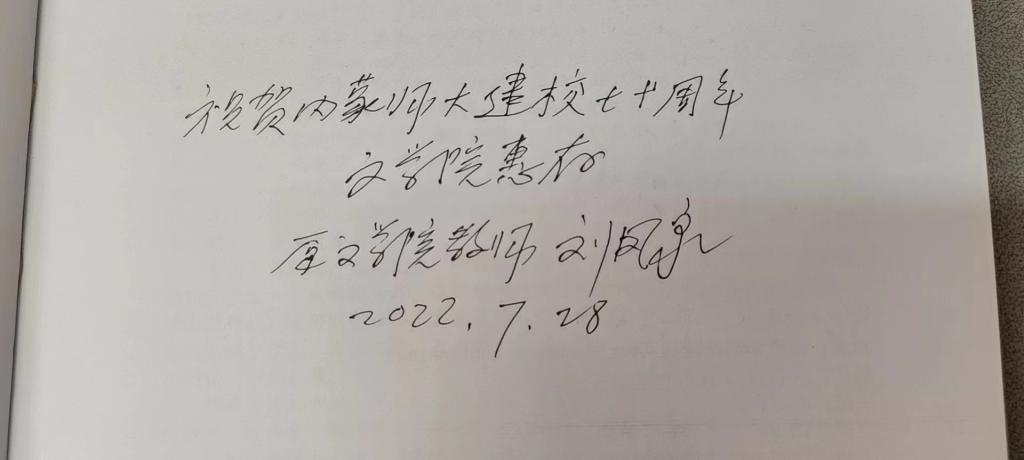 祝贺内蒙师大建校七十周年
文学院惠存
原文学院教师 刘凤泉
2022.7.28